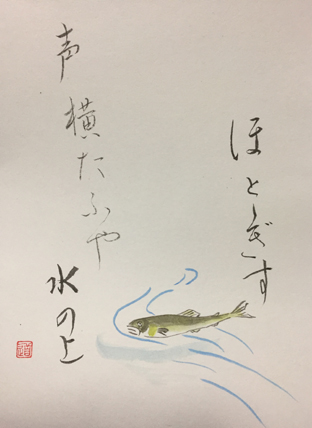 ほとゝぎす
声横たふや
水の上